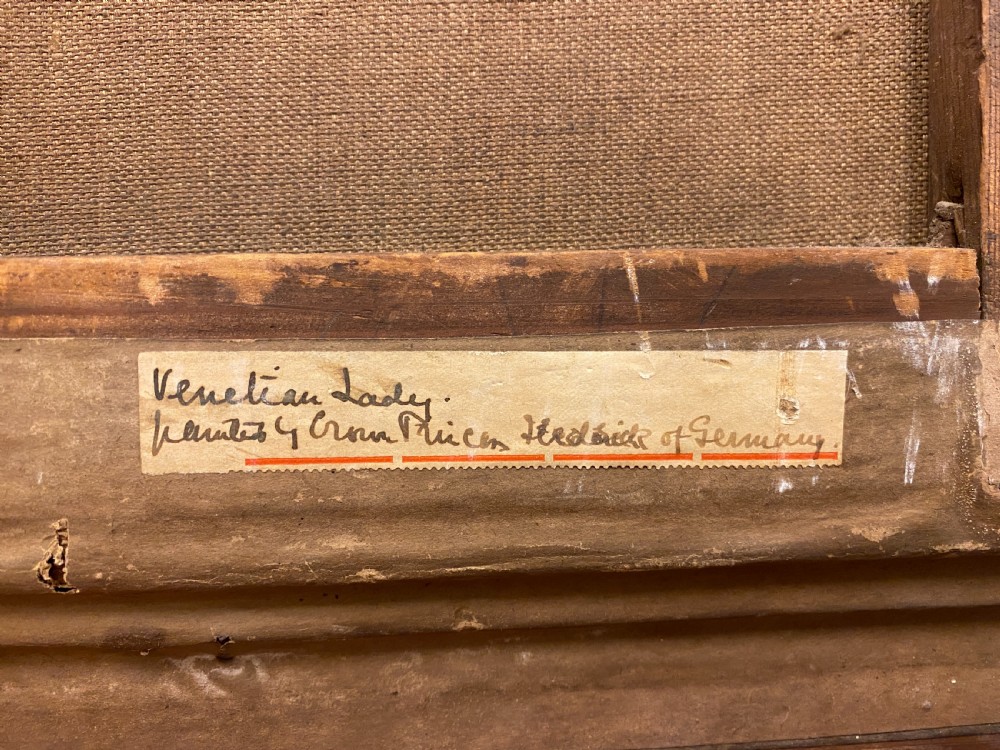 Venetian Lady.
painted by Crown Princess Frederick of Germany.